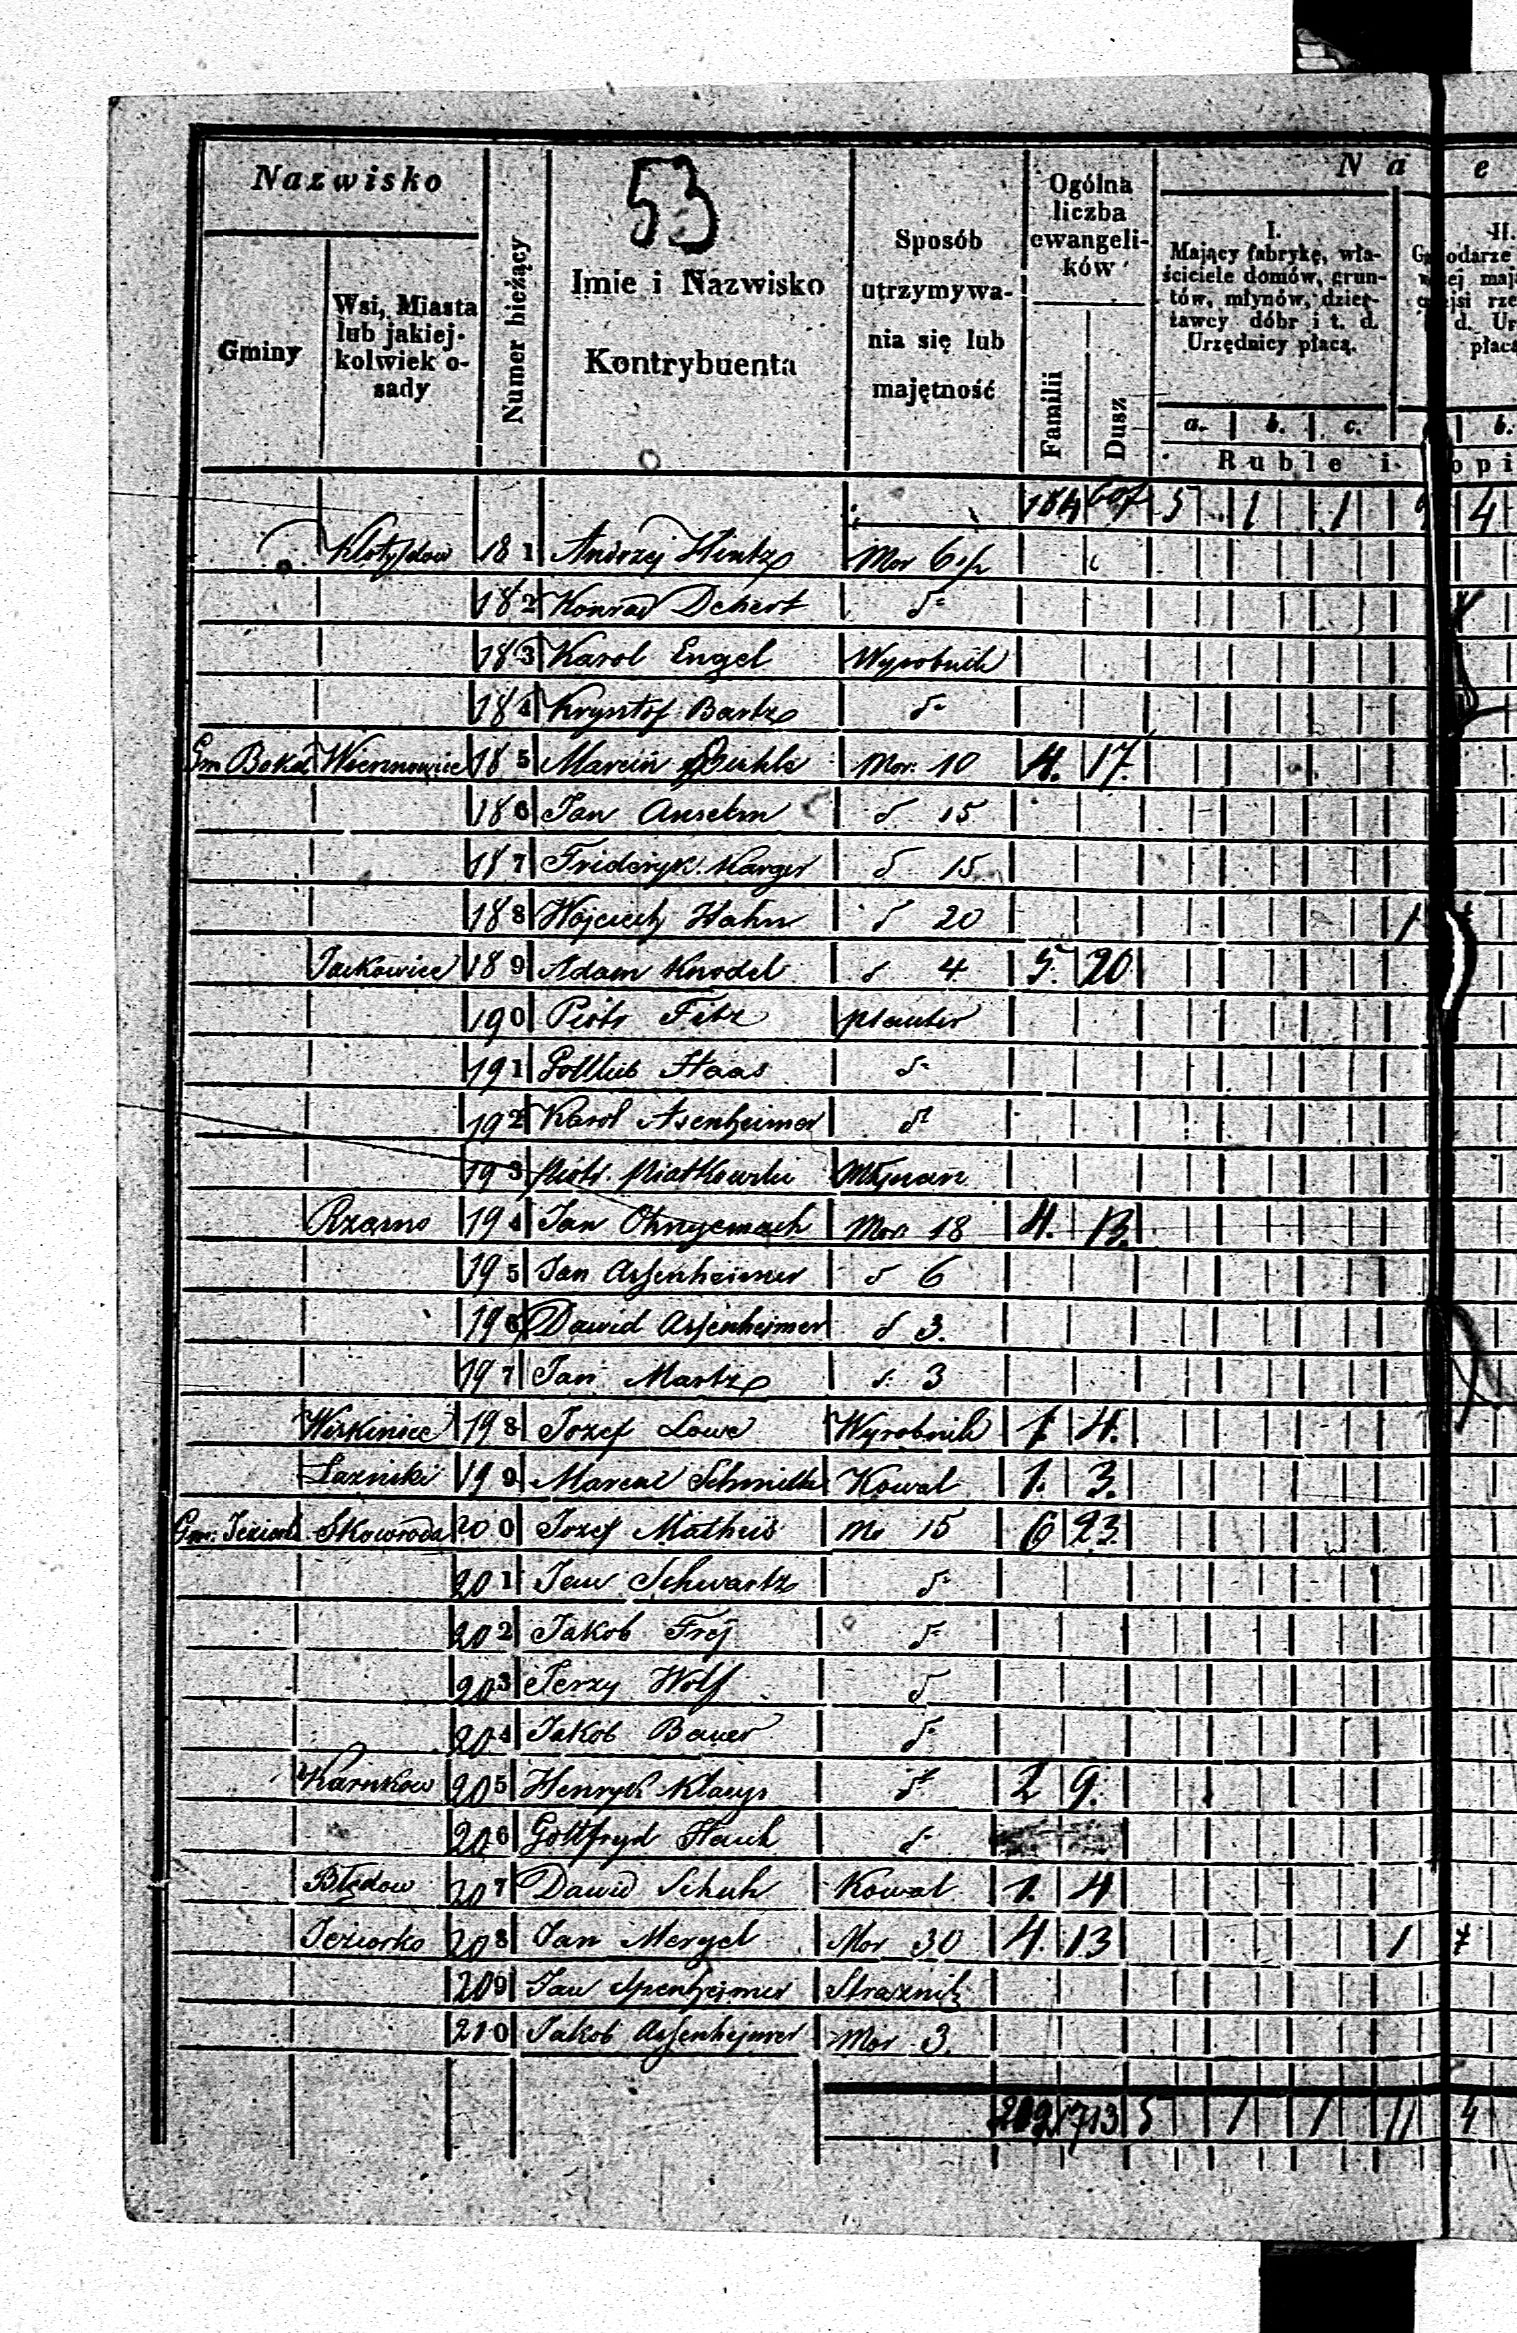 Nazwisko
Gminy
Wsi, Miasta
lub jakiej-
kolwiek o-
sady
Numer bieżący
53
Imie i Nazwisko
Kontrybuenta
Sposób
utrzymywa-
nia się lub
majętność
Ogólna
liczba
ewangeli-
ków
Familii
Dusz
N a e
I.
Mający fabrykę, wła-
ściciele domów, grun-
tów, młynów, dzier-
żawcy dóbr i t. d.
Urzędnicy płacą.
a. b. c.
II.
b.
Ruble i opi
184 5 1 1 4
181 Andrzej Hintz Mor 6 1/2
182 Konrad Dekert d-
183 Karol Engel Wyrobnik
184 Krysztof Bartz d-
185 Marcin Mor. 10 4. 17.
186 Jan Anselm d 15
187 Frideryk Karger d 15
188 Wojciech Hahn d 20 1
Jackowice 189 Adam Knodel d 4 5. 20
190 Piotr Fitz planter
191 Gottlieb Haas d-
192 Karol Asenheimer d-
193 Piotr Piatkowski Młynarz
Rząsno 194 Jan Mor 18 4. 13.
195 Jan Assenheimer d 6
196 Dawid Assenheimer d 3.
197 Jan Martz d. 3
Wiskinice 198 Jozef Lowe Wyrobnik 1. 4.
Łazniki 199 Schmidtke Kowal 1. 3.
Skowroda 200 Jozef Matheis Mo 15 6 23.
201 Jan Schwartz d-
202 Jakob Frej d-
203 Jerzy Wolf d
204 Jakob Bauer d-
Karnkow 205 Henryk d- 2 9.
206 Gottfryd Hauk d-
Błędow 207 Dawid Schuh Kowal 1. 4
Jeziorko 208 Jan Mergel Mor 30 4. 13 1
209 Jan Strażnik
210 Jakob Assenhejmer Mor 3.
209 713 5 1 1 11 4